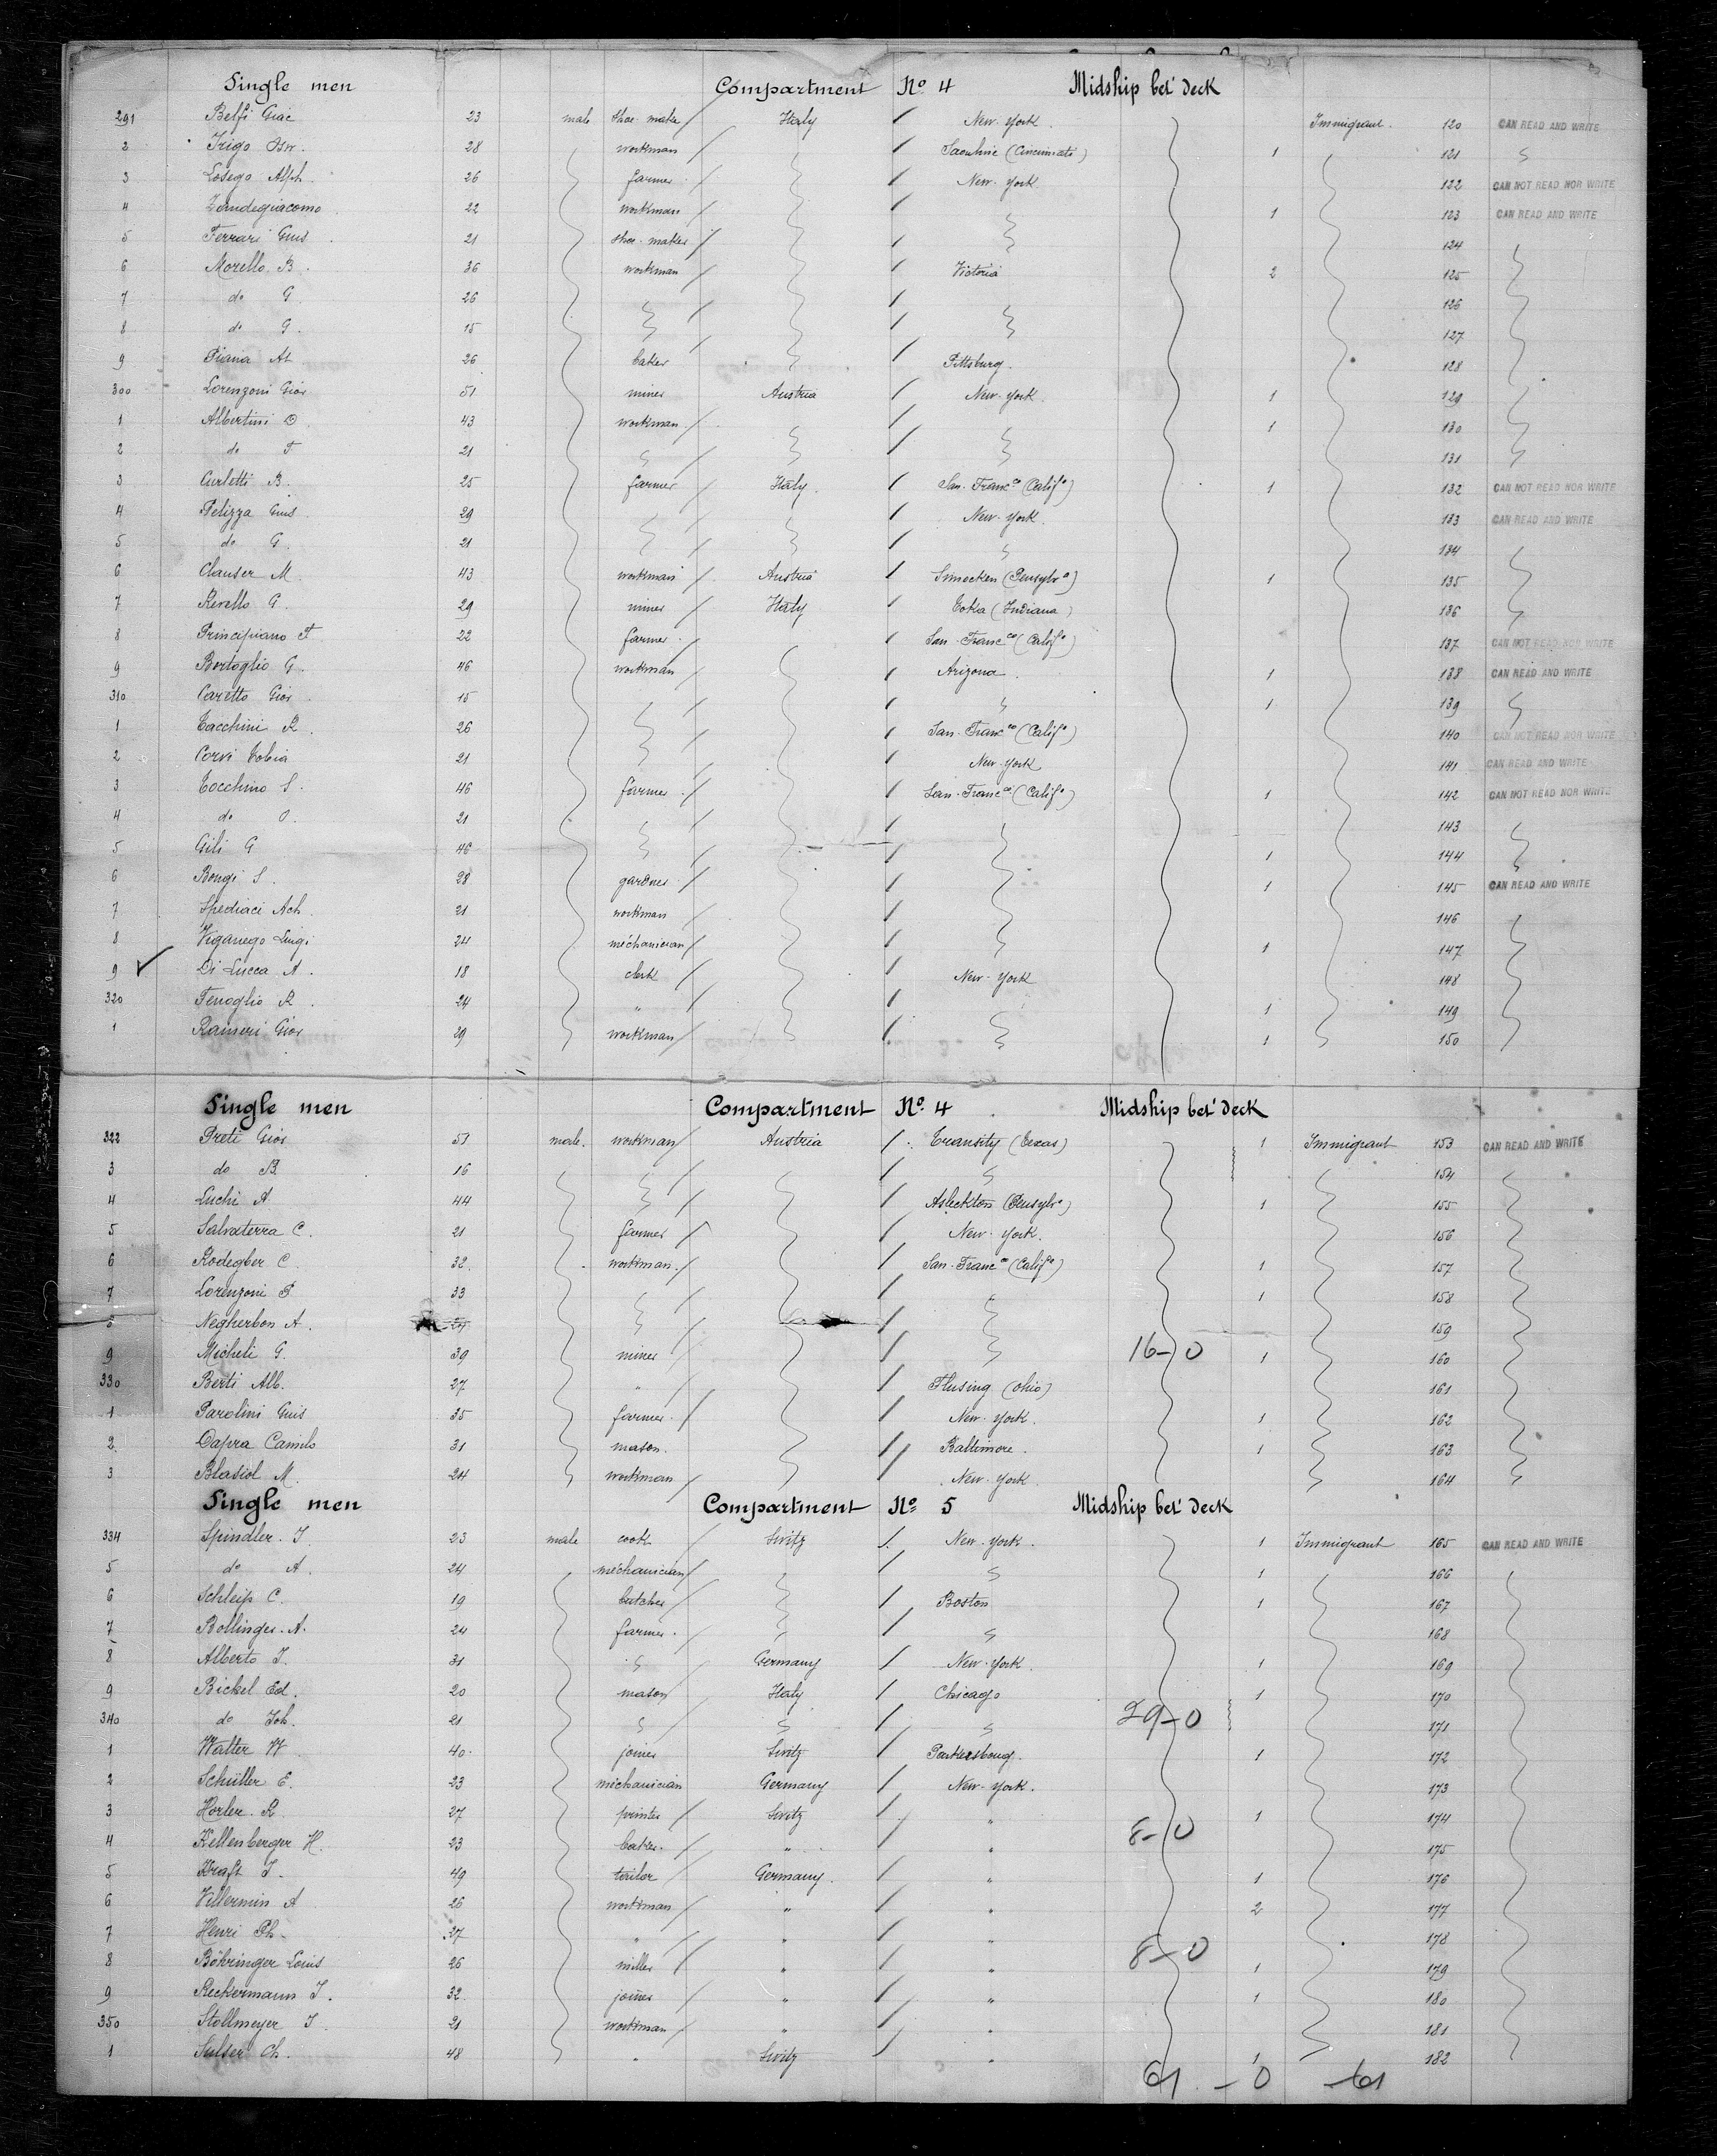 Single men Compartment No. 4 Midship bet' deck
291 Belfi Giac 23 male shoe-maker Italy New-York. Immigrant. 120 CAN READ AND WRITE
2 Frigo 28 workman (Cincinnati) 1 121
3 Losego Alph. 26 farmer New-York 122 CAN NOT READ NOR WRITE
4 Zandegiacomo 22 workman 1 123 CAN READ AND WRITE
5 Ferrari Guis 21 shoe-maker 124
6 Morello B. 36 workman Victoria 2 125
7 do G. 26 126
8 do G. 15 127
9 Piana At 26 baker Pittsburg. 128
300 Lorenzoni Giov 51 miner Austria New-York. 1 129
1 Albertini D. 43 workman. 1 130
2 do F 21 131
3 Curletti B. 25 farmer Italy. San-Franc.co (Calif.a) 1 132 CAN NOT READ NOR WRITE
4 Pelizza Guis. 29 New-York. 133 CAN READ AND WRITE
5 do G. 21 134
6 Clauser M. 43 workman Austria (Pensylv.a) 1 135
7 Revello G. 29 miner Italy (Indiana) 136
8 Principiano F. 22 farmer. San-Franc.co (Calif.a) 137 CAN NOT READ NOR WRITE
9 Bortoglio G. 46 workman Arizona. 1 138 CAN READ AND WRITE
310 Caretto Giov. 15 1 139
1 Tacchini R. 26 San-Franc.co (Calif.a) 140 CAN NOT READ NOR WRITE
2 Corvi Tobia 21 New-York 141 CAN READ AND WRITE
3 Tocchino S. 46 farmer. San-Franc.co (Calif.a) 1 142 CAN NOT READ NOR WRITE
4 do O. 21 143
5 Gili G 46 1 144
6 Bongi S. 28 gardner. 1 145 CAN READ AND WRITE
7 Spediaci Ach. 21 workman 146
8 Viganego Luigi 24 méchanician 1 147
9 Di Lucca A. 18 clerk New-York 148
320 Fenoglio R. 24 " 1 149
1 Raineri Giov 29 workman 1 150
Single men Compartment No. 4 Midship bet' deck
322 Preti Giov 51 male. workman Austria (Texas) 1 Immigrant 153 CAN READ AND WRITE
3 do B. 16 154
4 Luchi A. 44 (Pensylv.a) 1 155
5 Salvaterra C. 21 farmer New-York. 156
6 Rodegher C. 32. workman. San-Franc.co (Calif.a) 1 157
7 Lorenzoni P 33 1 158
8 Negherbon A. 159
9 Micheli G. 39 miner 16-0 1 160
330 Berti Alb. 27 " Flusing (Ohio) 161
1 Parolini Guis 35 farmer. New-York. 1 162
2 Dapra Camilo 31 mason. Baltimore. 1 163
3 Blasiol M. 24 workman New-York. 164
Single men Compartment No. 5 Midship bet' deck
334 Spindler. J. 23 male cook Switz New-York. 1 Immigrant 165 CAN READ AND WRITE
5 do A. 24 méchanician 1 166
6 Schleip C. 19 butcher Boston 1 167
7 Bollinger. A. 24 farmer. 168
8 Alberto J. 31 Germany New-York. 1 169
9 Bickel Ed. 20 mason Italy Chicago 1 170
340 do Joh. 21 29-0 171
1 Walter W. 40. joiner Switz Parkersboug. 1 172
2 Schüller E. 23 méchanician Germany New-York. 173
3 Horler. R. 27 printer Switz " 1 174
4 Kellenberger H. 23 baker. " " 8-0 175
5 Kraft J. 49 tailor Germany. " 1 176
6 Villermin A 26 workman " " 2 177
7 Henri Ph. 27 " " " 178
8 Böhringer Louis 26 miller " " 8-0 1 179
9 Reckermann J. 32. joiner " " 1 180
350 Stollmeyer J. 21 workman " " 181
1 Sulser Ch. 48 " Switz " 1 182
61 - 0 - 61